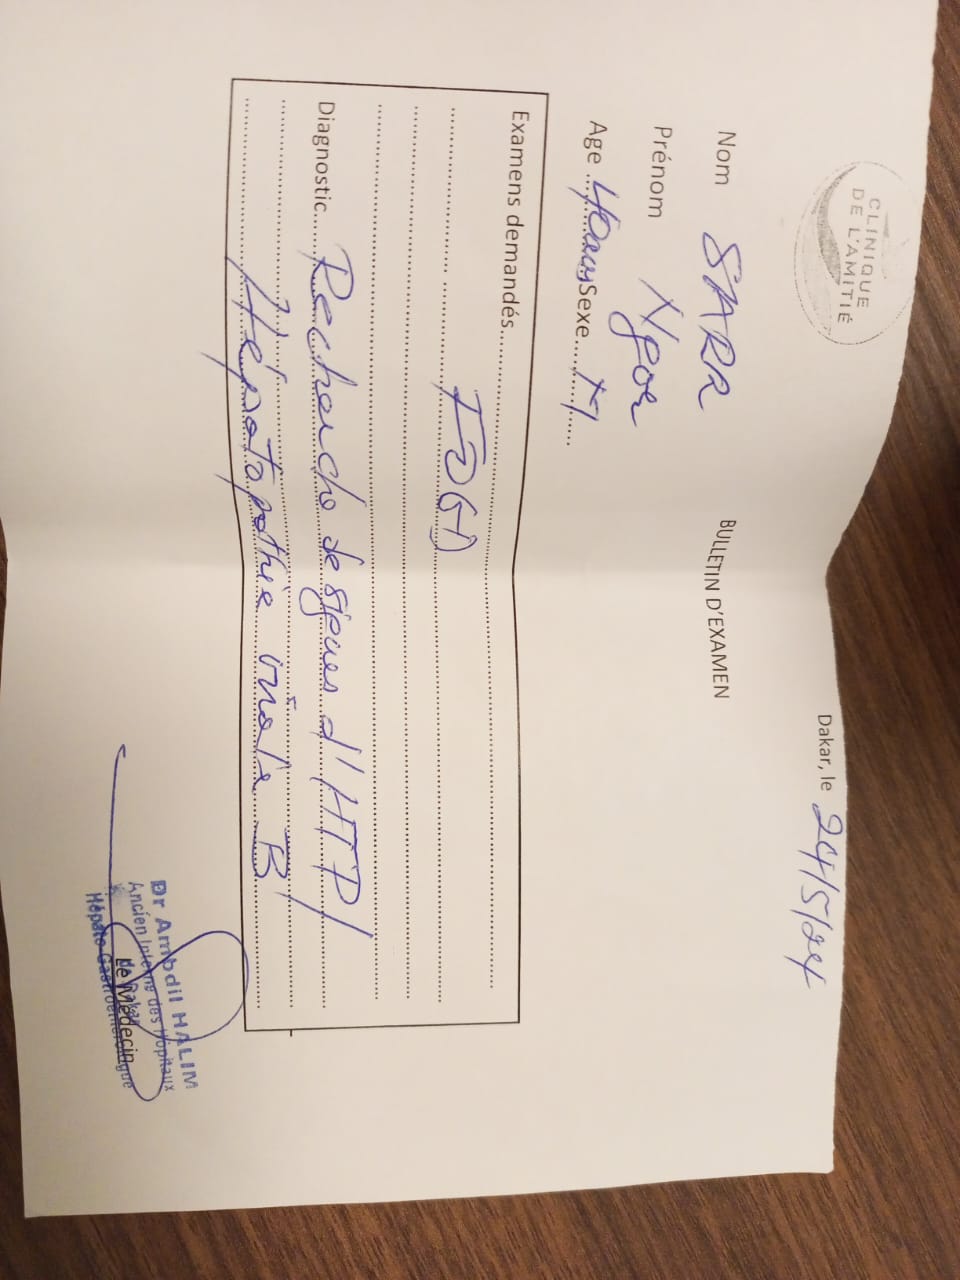 CLINIQUE
DE L'AMITIÉ
Dakar, le 24/5/24
BULLETIN D'EXAMEN
Nom SARR
Prénom Ngor
Age 40ans Sexe M
Examens demandés
FOGD
Diagnostic Recherche de signes d'HTP/
Hépatopathie virale B
Dr Ambdil HALIM
Ancien Interne des Hôpitaux
de Dakar
Hépato-Gastroentérologue
Le Médecin